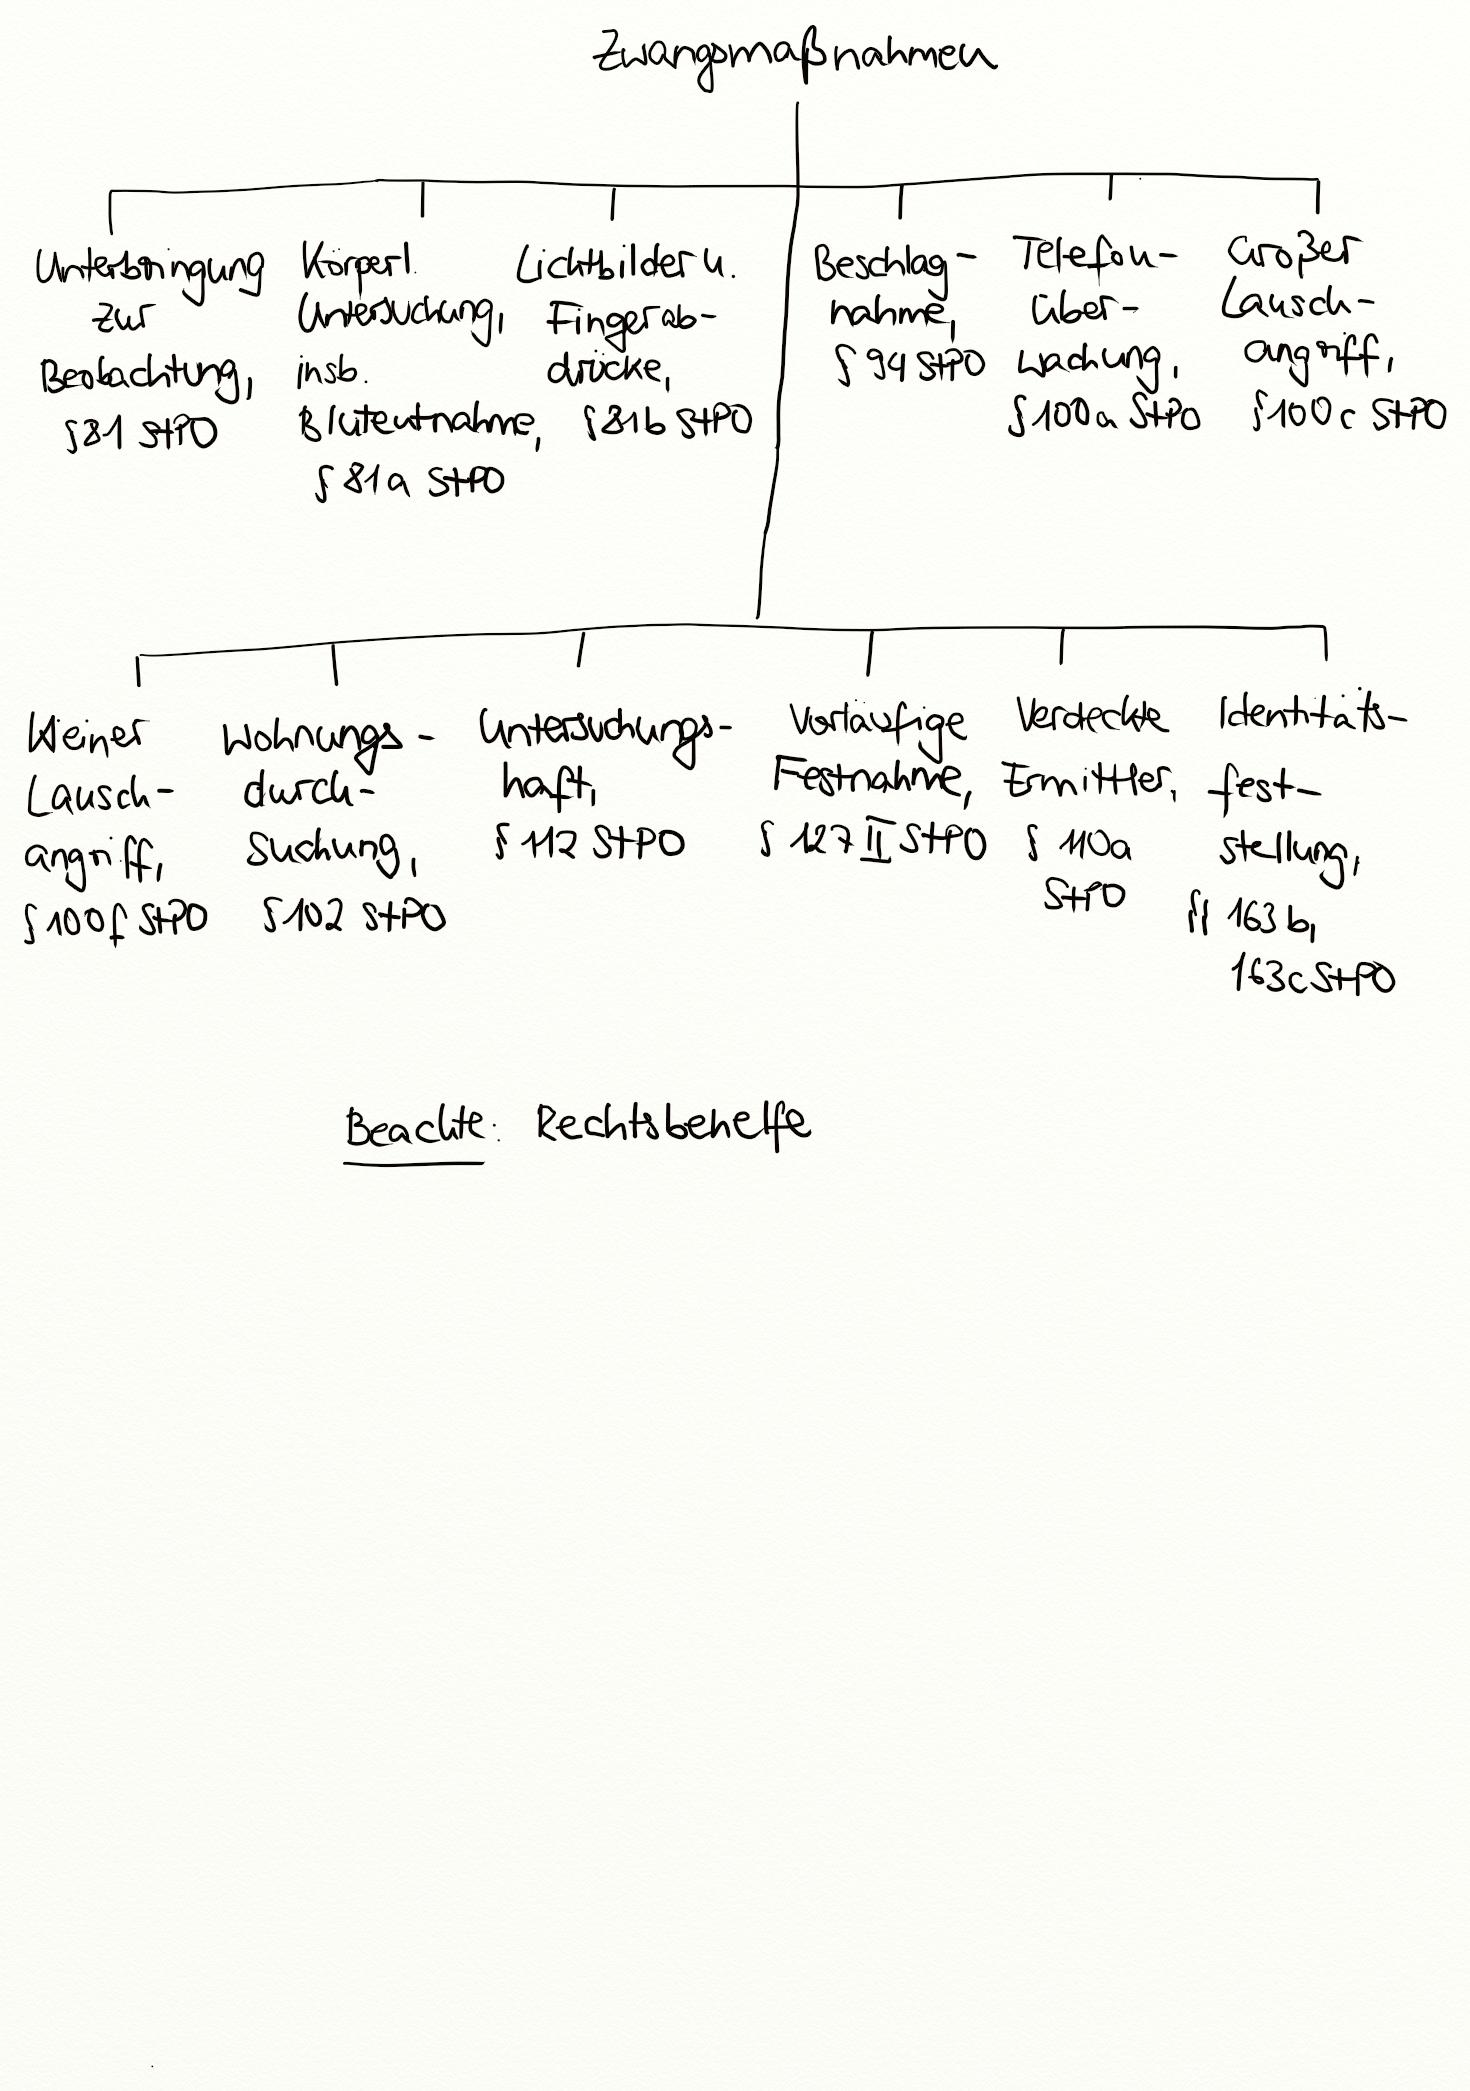 Zwangsmaßnahmen
Unterbringung
zur
Beobachtung,
§81 StPO
Körperl.
Untersuchung,
insb.
Blutentnahme,
§ 81a StPO
Lichtbilder u.
Fingerab-
drücke,
§81b StPO
Beschlag-
nahme,
§ 94 StPO
Telefon-
über-
wachung,
§100a StPO
Großer
Lausch-
angriff,
§100c StPO
Kleiner
Lausch-
angriff,
§100f StPO
Wohnungs-
durch-
suchung,
§102 StPO
Untersuchungs-
haft,
§ 112 StPO
Vorläufige
Festnahme,
§ 127 II StPO
Verdeckte
Ermittler,
§ 110a
StPO
Identitäts-
fest-
stellung,
§§ 163b,
163c StPO
Beachte: Rechtsbehelfe